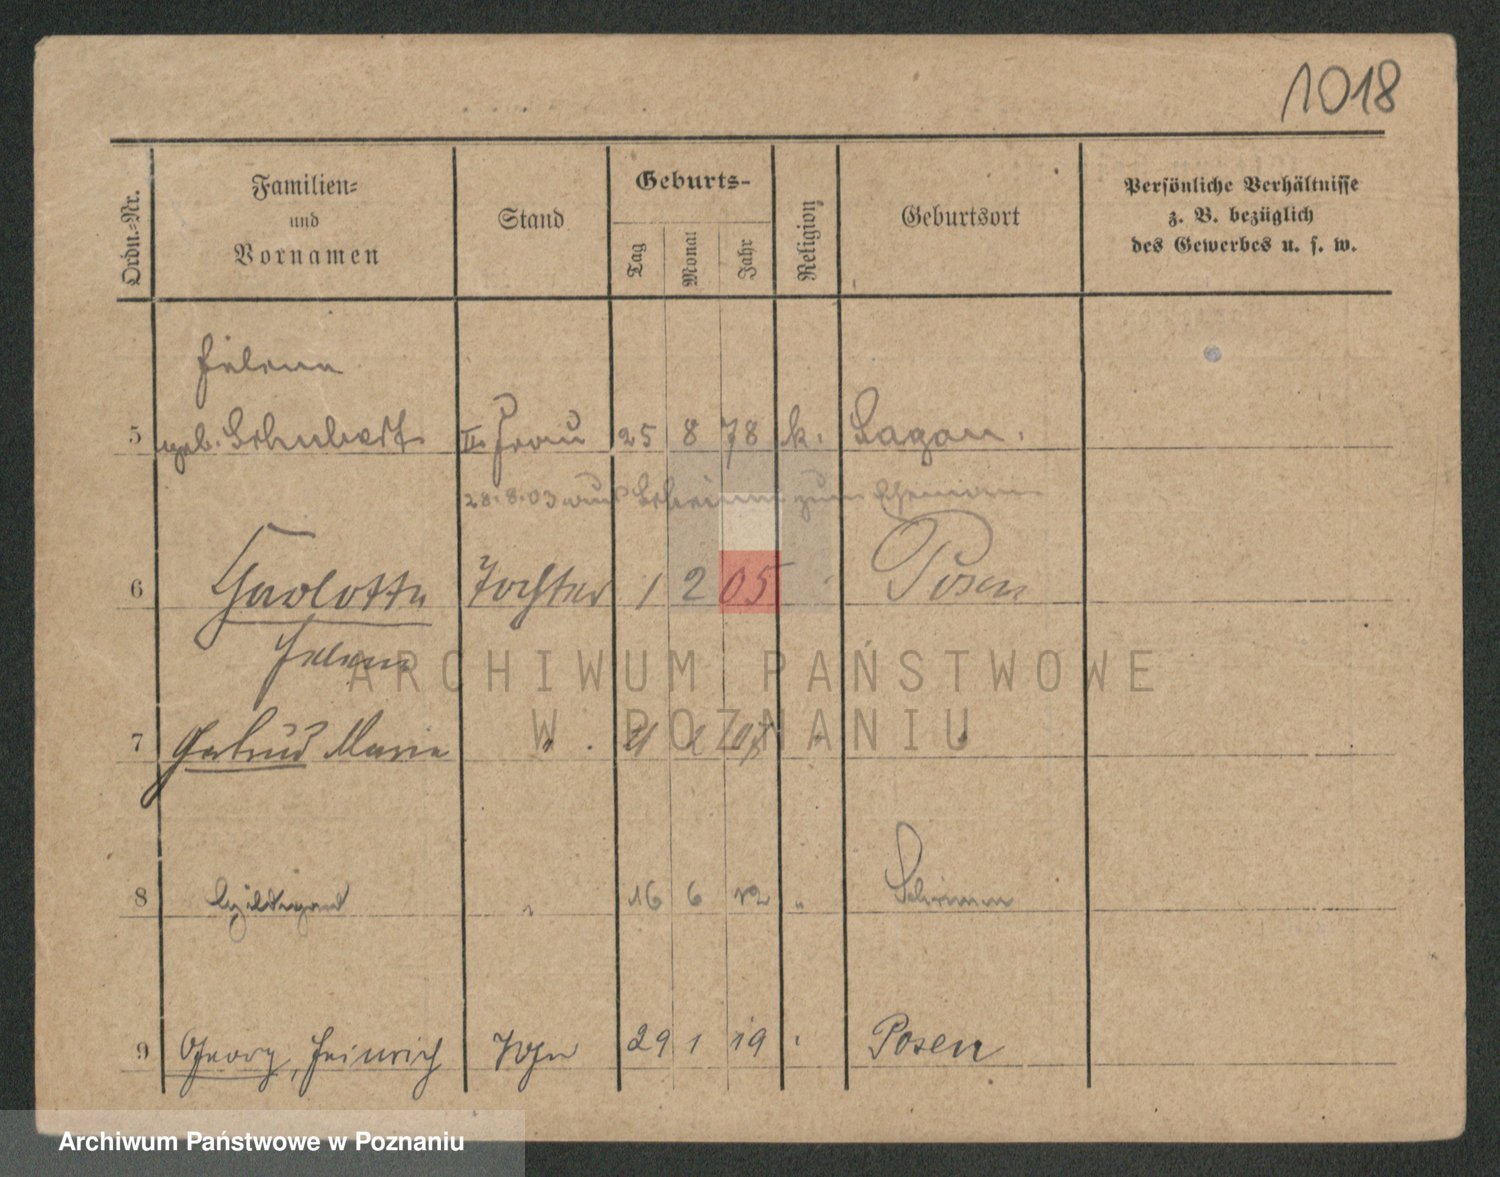 1018
Ordn.-Nr.
Familien-
und
Vornamen
Stand
Geburts-
Tag
Monat
Jahr
Religion
Geburtsort
Persönliche Verhältnisse
z. B. bezüglich
des Gewerbes u. s. w.
Helene
5 geb. Schubert II. Frau 25 8 78 k. Sagan.
28.8.03 zum Ehemann
6 Charlotte Tochter 1 2 05 Posen
Helene
7 Gertrud Marie " 2 "
8 Hildegard " 16 6 12 " Schrimm
9 Georg, Heinrich Sohn 29 1 19 Posen
ARCHIWUM PAŃSTWOWE
W POZNANIU
Archiwum Państwowe w Poznaniu